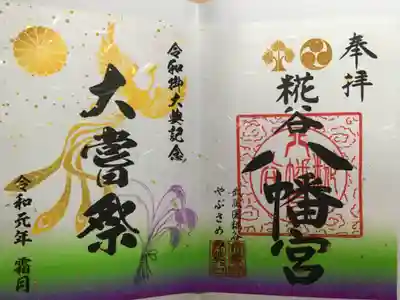 奉拝
糀谷
八幡宮
やぶさめ
令和御大典記念
大嘗祭
令和元年 霜月